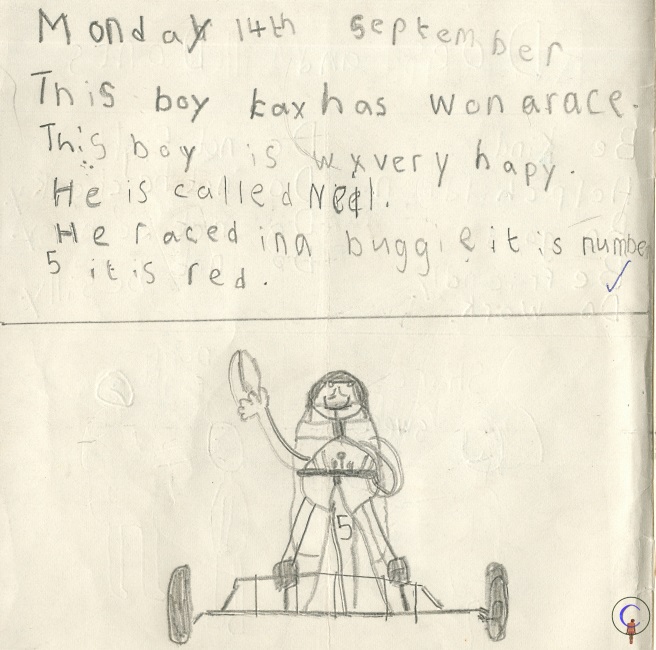 Monday 14th September
This boy has won a race.
This boy is very hapy.
He is called
He raced in a buggie it is number
5 it is red.
5
C